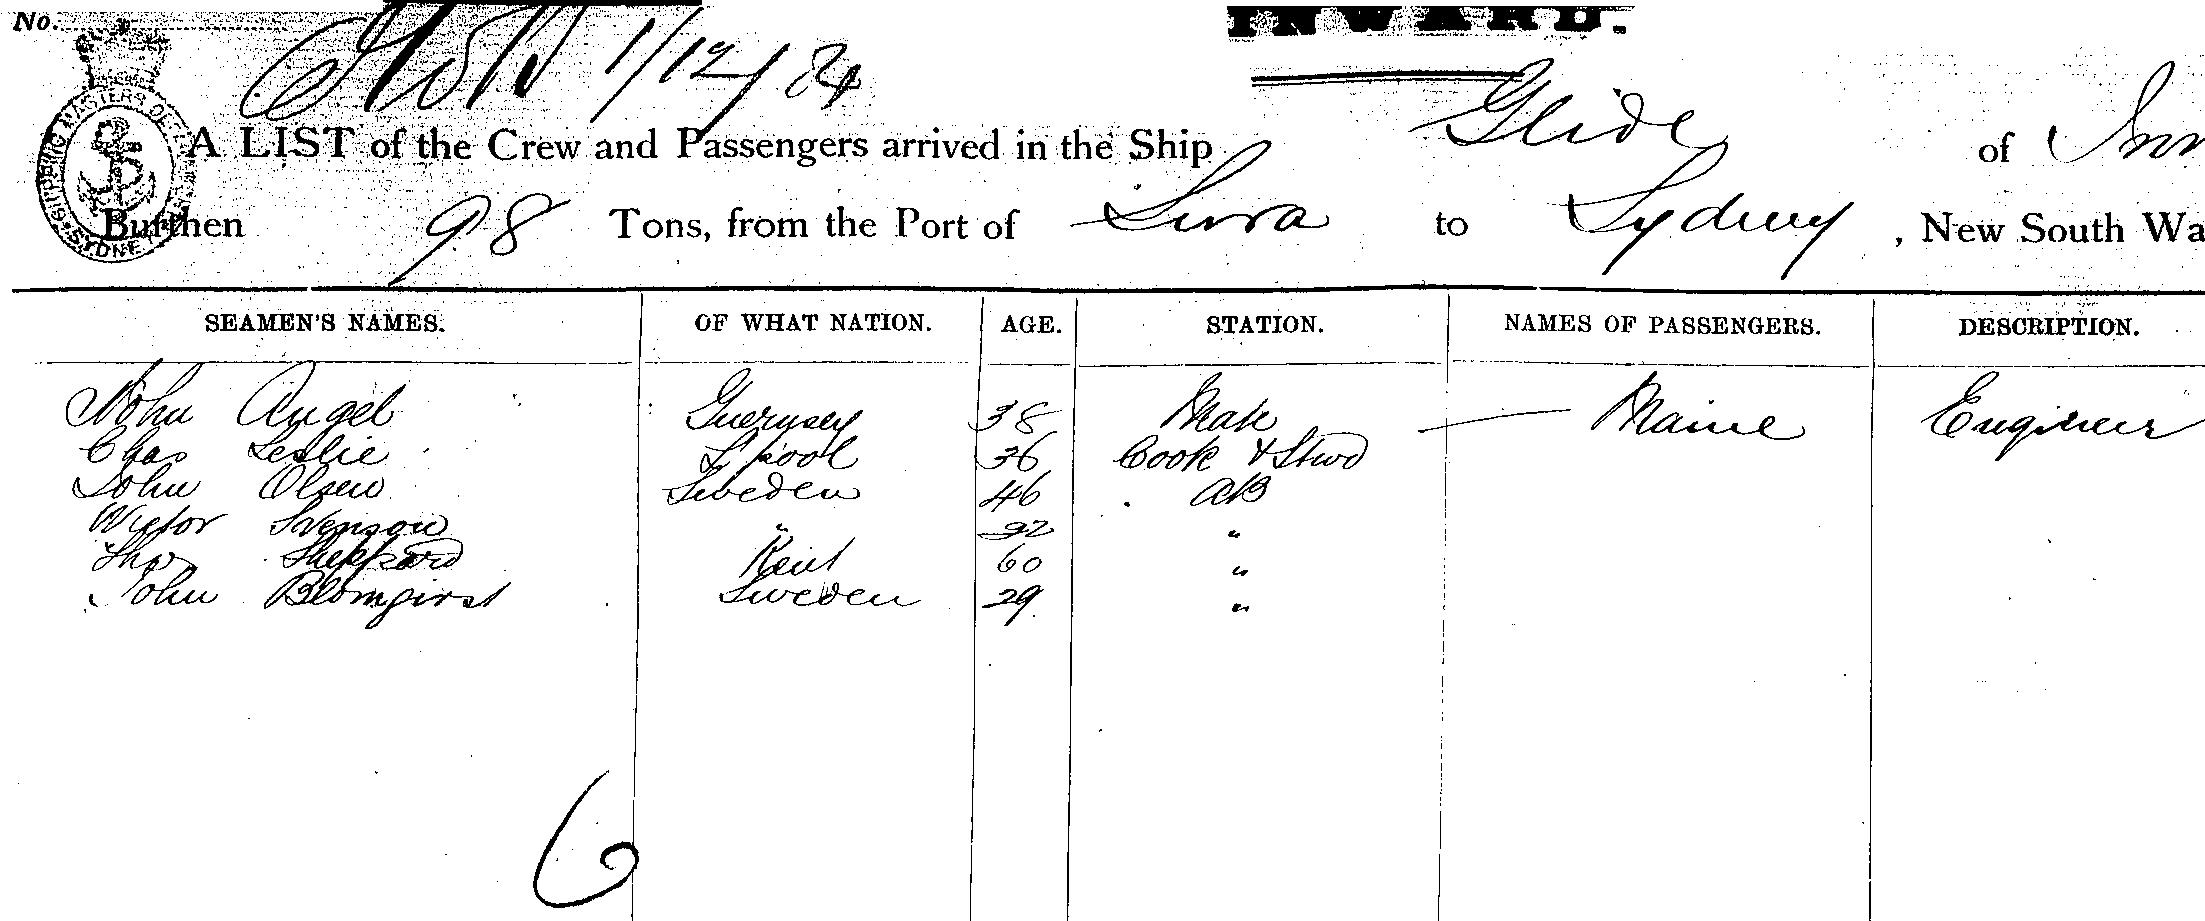 No.
INWARD.
1/12/84
A LIST of the Crew and Passengers arrived in the Ship Glide of
Burthen 98 Tons, from the Port of Suva to Sydney, New South Wa
SEAMEN'S NAMES. OF WHAT NATION. AGE. STATION. NAMES OF PASSENGERS. DESCRIPTION.
John Angel Guernsey 38 Mate — Maine Engineer
Chas Leslie L'pool 36 Cook & Stwd
John Olsen Sweden 46 AB
Victor Svenson " 22 "
Thos Sheppard Kent 60 "
John Sweden 29 "
6